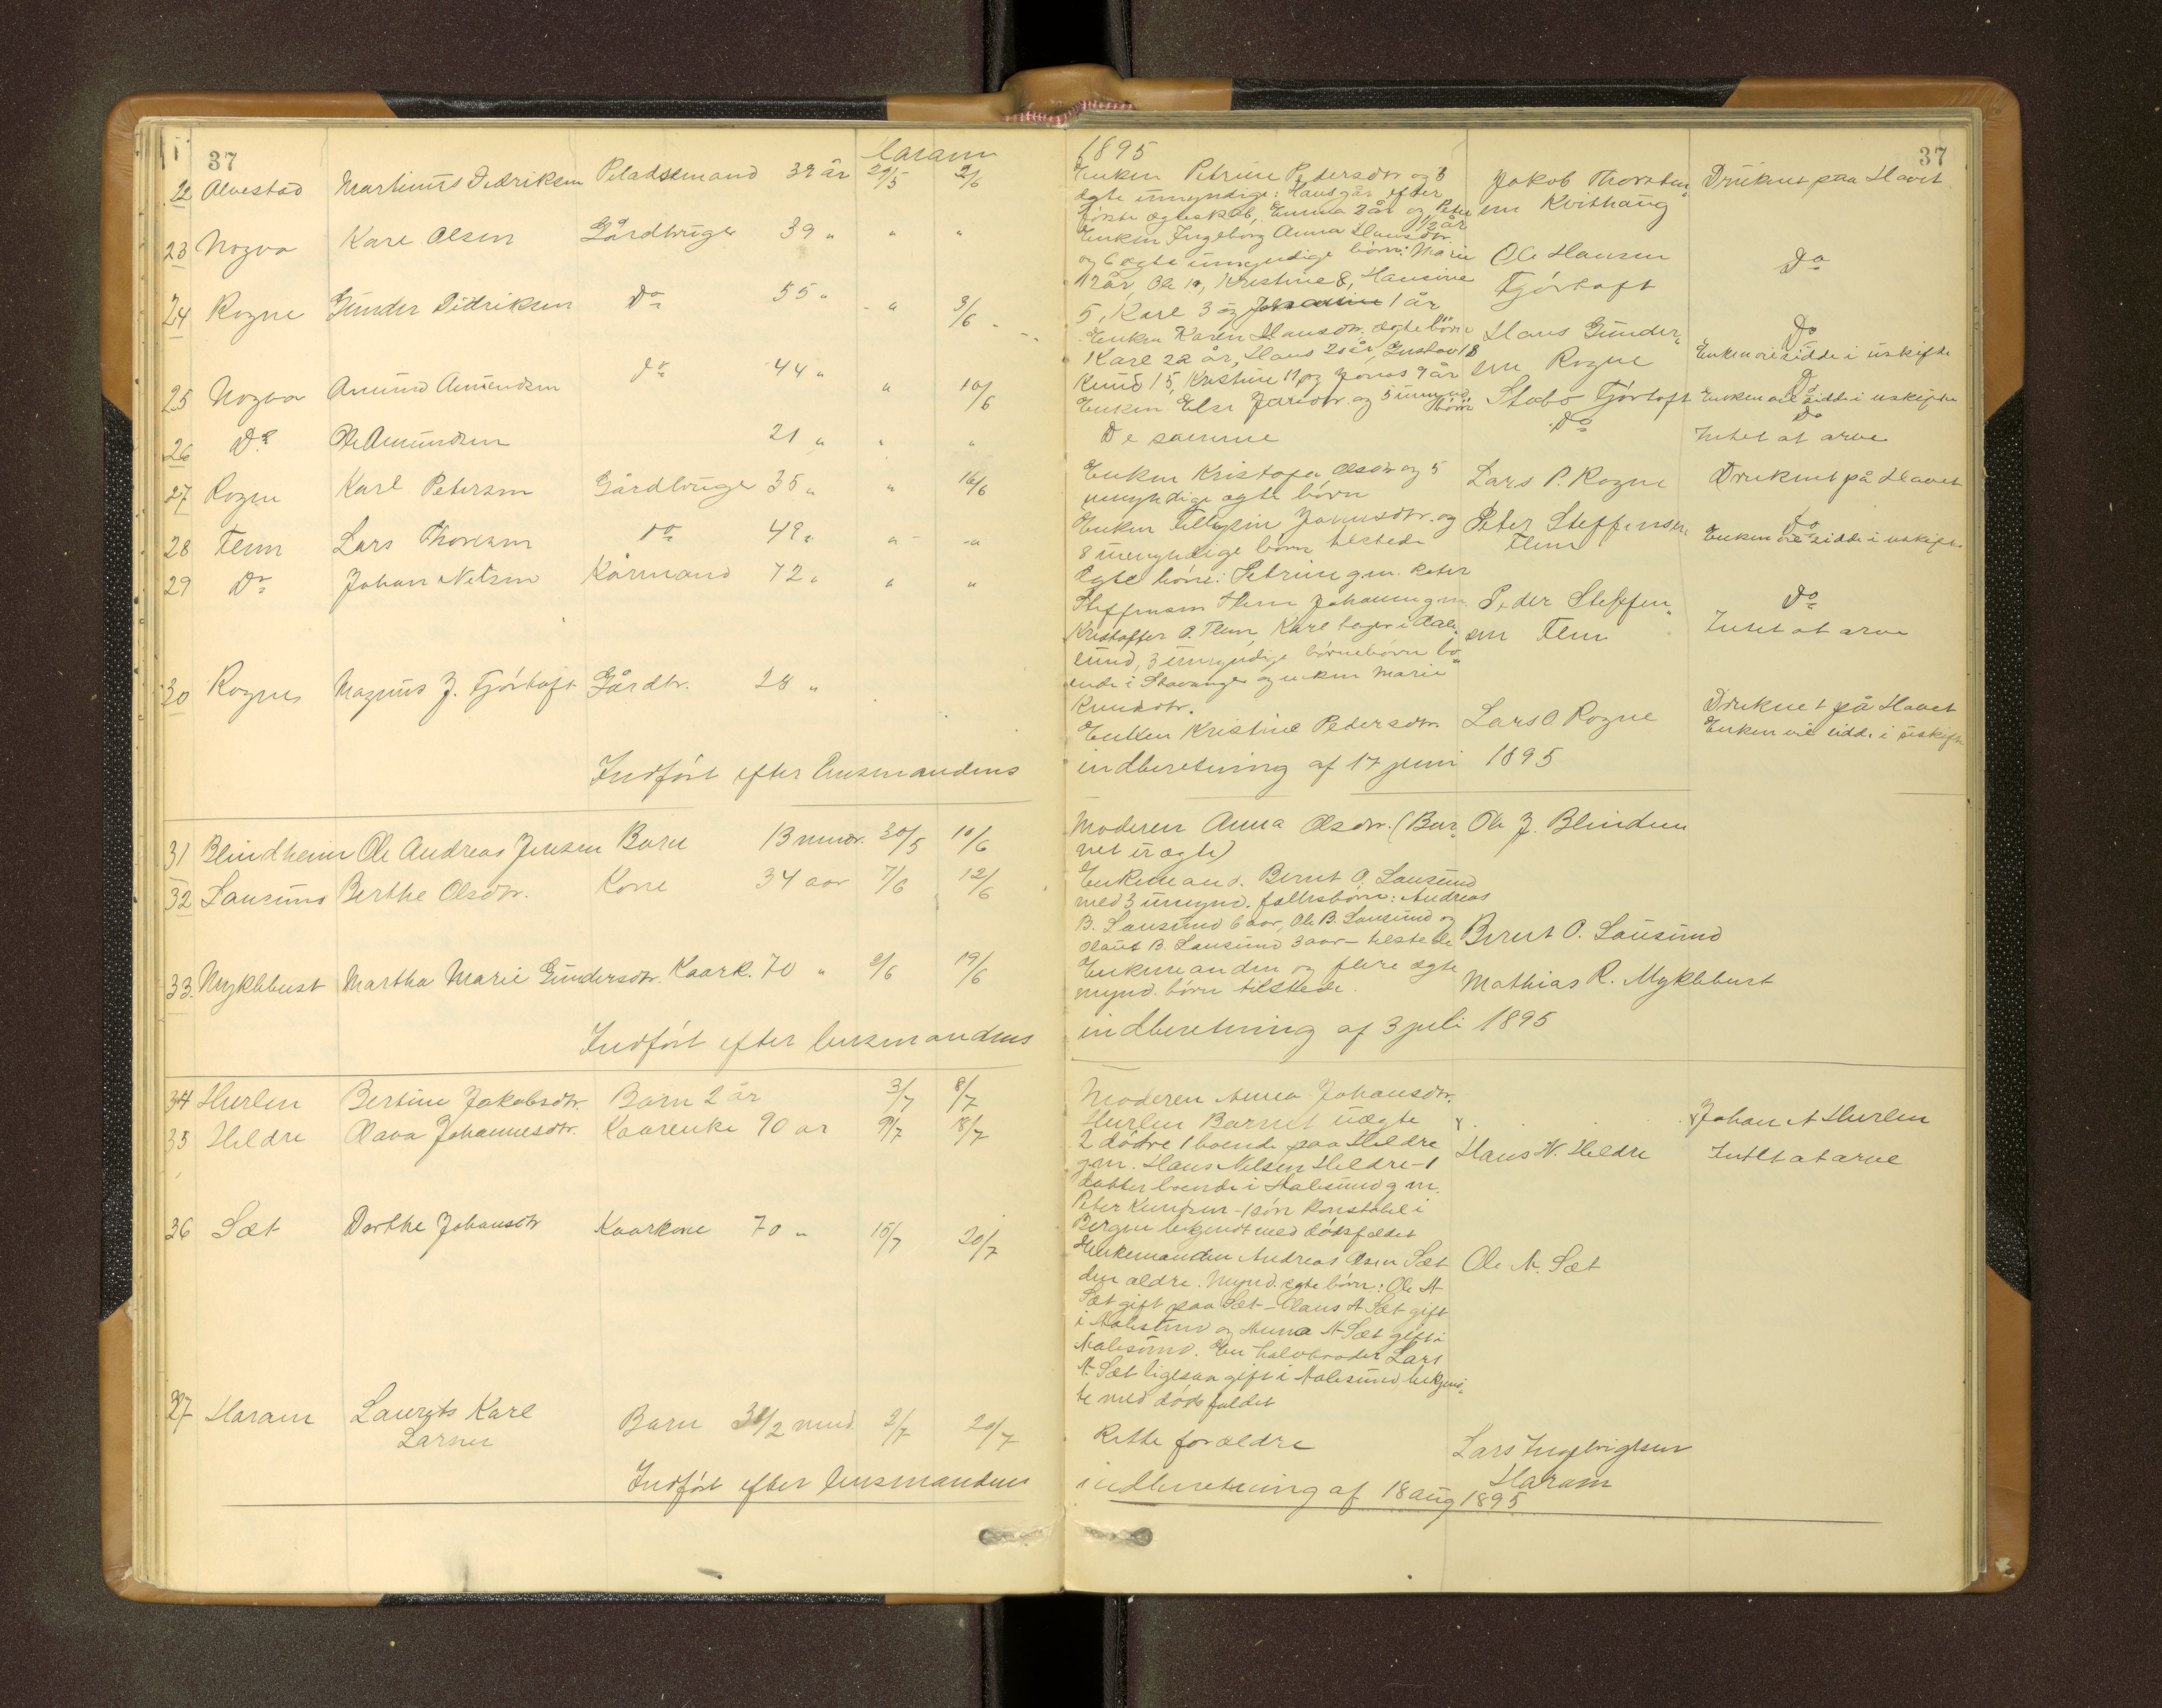 37
Haram
22 Alvestad Martinus Didriksen Pladsemand 39 år 29/5 2/6
23 Nogva Karl Olsen Gårdbruger 39 " " "
24 Rogne Gunder Didriksen Do 55 " " 3/6
25 Nogva Amund Amundsen do 44 " " 10/6
26 Do Ole Amundsen 21 " " "
27 Rogne Karl Petersen Gårdbruger 35 " " 16/6
28 Flem Lars Thoresen do 49 " " "
29 Do Johan Nilsen Kårmand 72 " " "
30 Rogne Magnus J. Fjørtoft Gårdbr. 28 "
Indført efter lensmandens
31 Blindheim Ole Andreas Jensen Barn 13 mndr. 30/5 10/6
32 Lausund Berthe Olsdtr. Kone 34 aar 7/6 12/6
33. Myklebust Martha Marie Gundersdtr. Kaark. 70 " 2/6 19/6
Indført efter lensmandens
34 Hurlen Bertine Jakobsdtr. Barn 2 år 3/7 8/7
35 Hildre Olava Johannesdtr. Kaarenke 90 ar 9/7 18/7
36 Sæt Dorthe Johansdtr Kaarkone 70 " 15/7 20/7
37 Haram Laurits Karl
Larsen
Barn 3 1/2 mnd 2/7 20/7
Indført efter lensmandens
1895
37
Enken Petrine Pedersdtr og 3
ægte umyndige: Hans går efter
første ægteskab, Emma 2 år og Peter
1/2 år
Jakob Thorsten-
sen Kvithaug
Druknet paa Havet
Enken Ingeborg Anna Hansdtr.
og 6 ægte umyndige børn: Marie
12 år, Ole 10, Kristine 8, Hansine
5, Karl 3 og 1 år
Ole Hansen
Fjørtoft
Do
Enken Karen Hansdtr. ægte børn
Karl 22 år, Hans 20 år, Gustav 18
Knud 15, Kristine 11 og Jonas 9 år
Hans Gunder-
sen Rogne
Do
Enken vil sidde i uskifte
Enken Else Jansdtr. og 5 umynd.
børn
Fjørtoft
Do
Enken vil sidde i uskifte
De samme
Do
Do
Intet at arve
Enken Kristofa Olsdtr og 5
umyndige ægte børn
Lars P. Rogne
Druknet på Havet
Enken Jonsdtr. og
8 umyndige børn tilstede
Peter Steffensen
Flem
Do
Enken vil sidde i uskifte
Ægte børn: Petrine g.m. Peter
Steffensen Flem Johanne g.m.
Kristoffer O. Flem, Karl bager i Aale-
sund, 3 umyndige børnebørn bo-
ende i Stavanger og enken Marie
Knudsdtr.
Peder Steffen-
sen Flem
Do
Intet at arve
Enken Kristine Petersdtr.
Lars O Rogne
Druknet på Havet
Enken vil sidde i uskifte
indberetning af 17 juni 1895
Moderen Anna Olsdtr. (Bar-
net er ægte)
Ole J. Blindheim
Enkemand. Bernt O. Lausund
med 3 umynd. fællesbørn: Andreas
B. Lausund 6 aar, Ole B. Lausund og
Olaus B. Lausund 3 aar - tilstede
Bernt O. Lausund
Enkemanden og flere ægte
mynd. børn tilstede.
Mathias R. Myklebust
indberetning af 3 juli 1895
Moderen Anna Johansdtr.
Hurlen Barnet uægte
Johan A Hurlen
2 døtre 1 boende paa Hildre
g.m. Hans Nilsen Hildre - 1
datter boende i Aalesund g m.
Peter Knudsen - 1 søn Konstabel i
Bergen bekjendt med dødsfaldet
Hans N. Hildre
Intet at arve
Enkemanden Andreas Olsen Sæt
den ældre. Mynd. ægte børn: Ole A
Sæt gift paa Sæt - Claus A Sæt gift
i Aalesund og Anna A Sæt gift i
Aalesund. En halvbroder Lars
A. Sæt ligesaa gift i Aalesund bekjend-
te med dødsfaldet
Ole A. Sæt
Rette forældre
Lars Ingebrigtsen
Haram
indberetning af 18 aug 1895